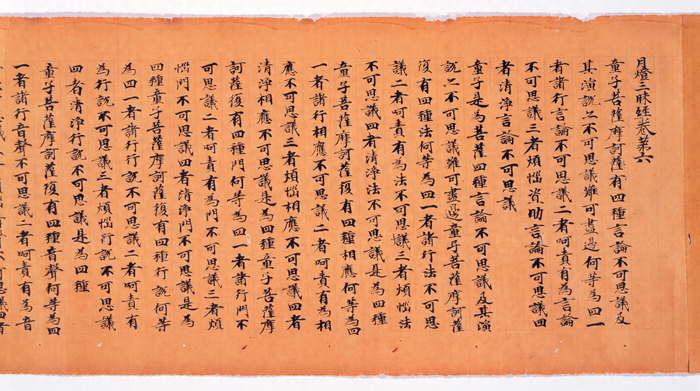 月燈三昧経卷第六
童子菩薩摩訶薩有四種言論不可思議及
其演說亦不可思議難可盡邊何等為四一
者諸行言論不可思議二者呵責有為言論
不可思議三者煩惱資助言論不可思議四
者清淨言論不可思議
童子是為菩薩四種言論不可思議及其演
說亦不可思議難可盡邊童子菩薩摩訶薩
復有四種法何等為四一者諸行法不可思
議二者呵責有為法不可思議三者煩惱法
不可思議四者清淨法不可思議是為四種
童子菩薩摩訶薩復有四種相應何等為四
一者諸行相應不可思議二者呵責有為相
應不可思議三者煩惱相應不可思議四者
清淨相應不可思議是為四種童子菩薩摩
訶薩復有四種門何等為四一者諸行門不
可思議二者呵責有為門不可思議三者煩
惱門不可思議四者清淨門不可思議是為
四種童子菩薩摩訶薩復有四種行說何等
為四一者諸行行說不可思議二者呵責有
為行說不可思議三者煩惱行說不可思議
四者清淨行說不可思議是為四種
童子菩薩摩訶薩復有四種音聲何等為四
一者諸行音聲不可思議二者呵責有為音